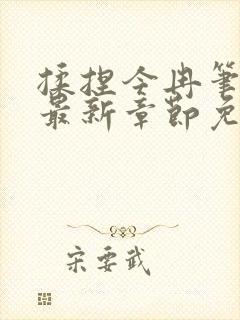 揉捏今冉笔
最新章节免
宋要武